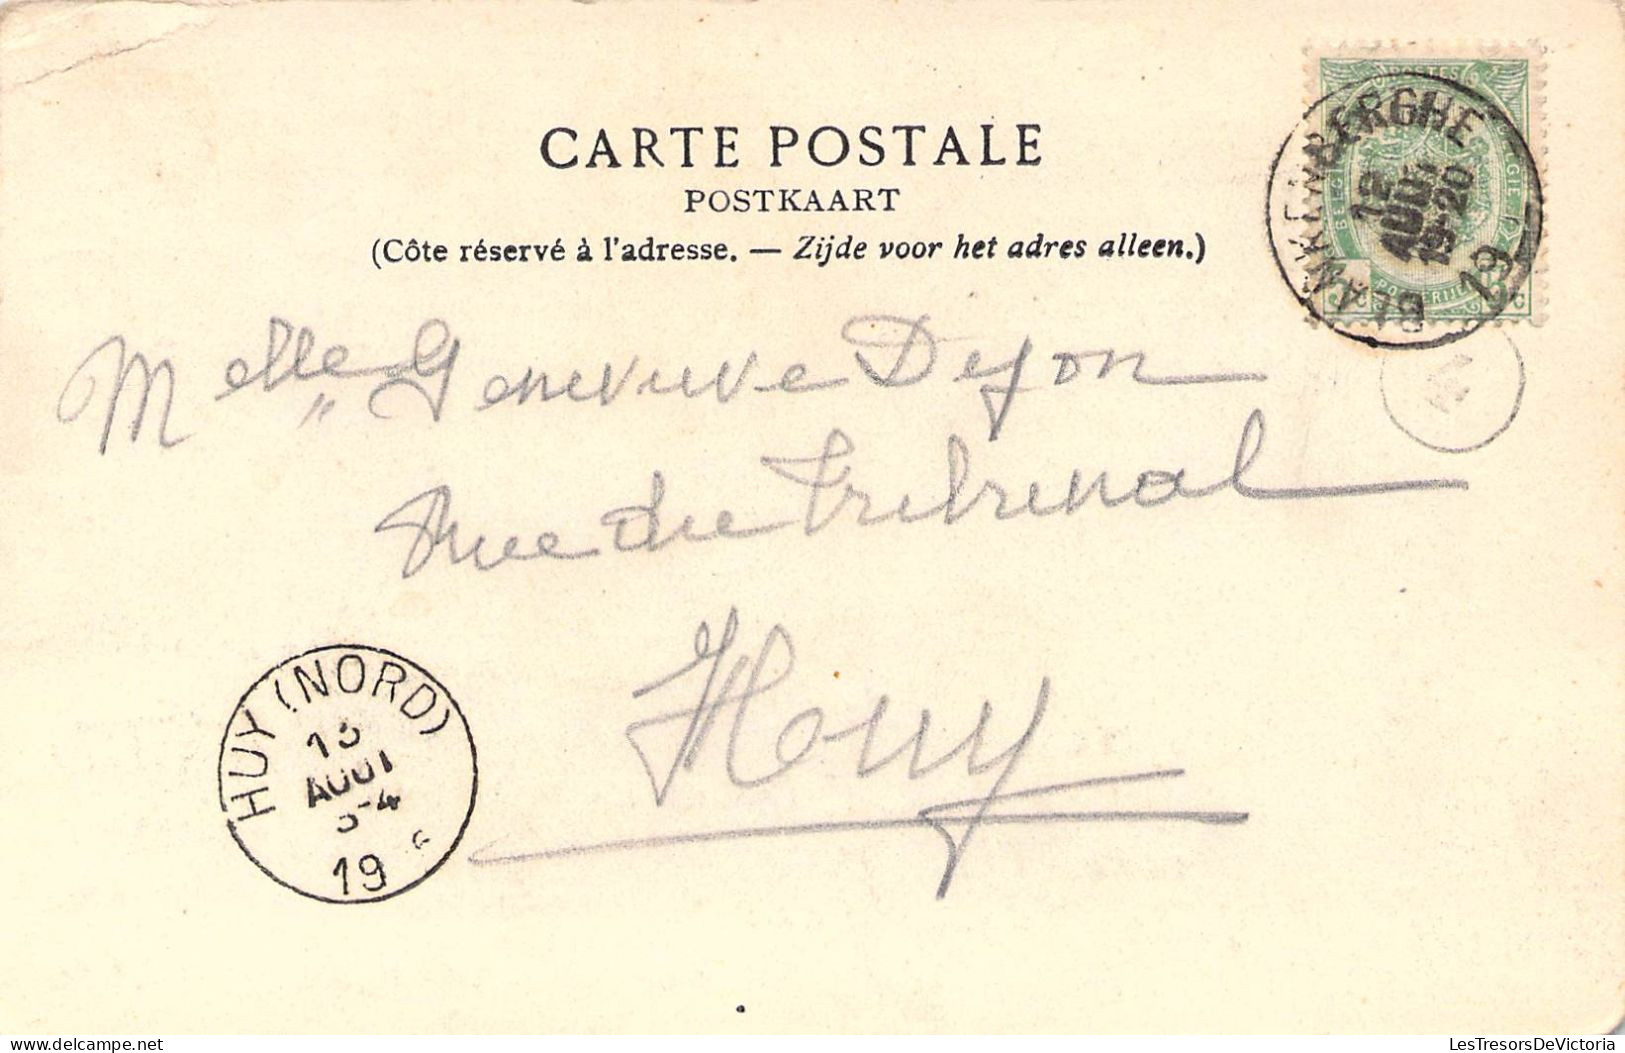 CARTE POSTALE
POSTKAART
(Côte réservé à l'adresse. — Zijde voor het adres alleen.)
BLANKENBERGHE
12
AOUT
19-20
19
Melle Genevieve Dejon
Rue du Tribunal
Huy
HUY (NORD)
13
AOUT
3-4
19
LesTresorsDeVictoria